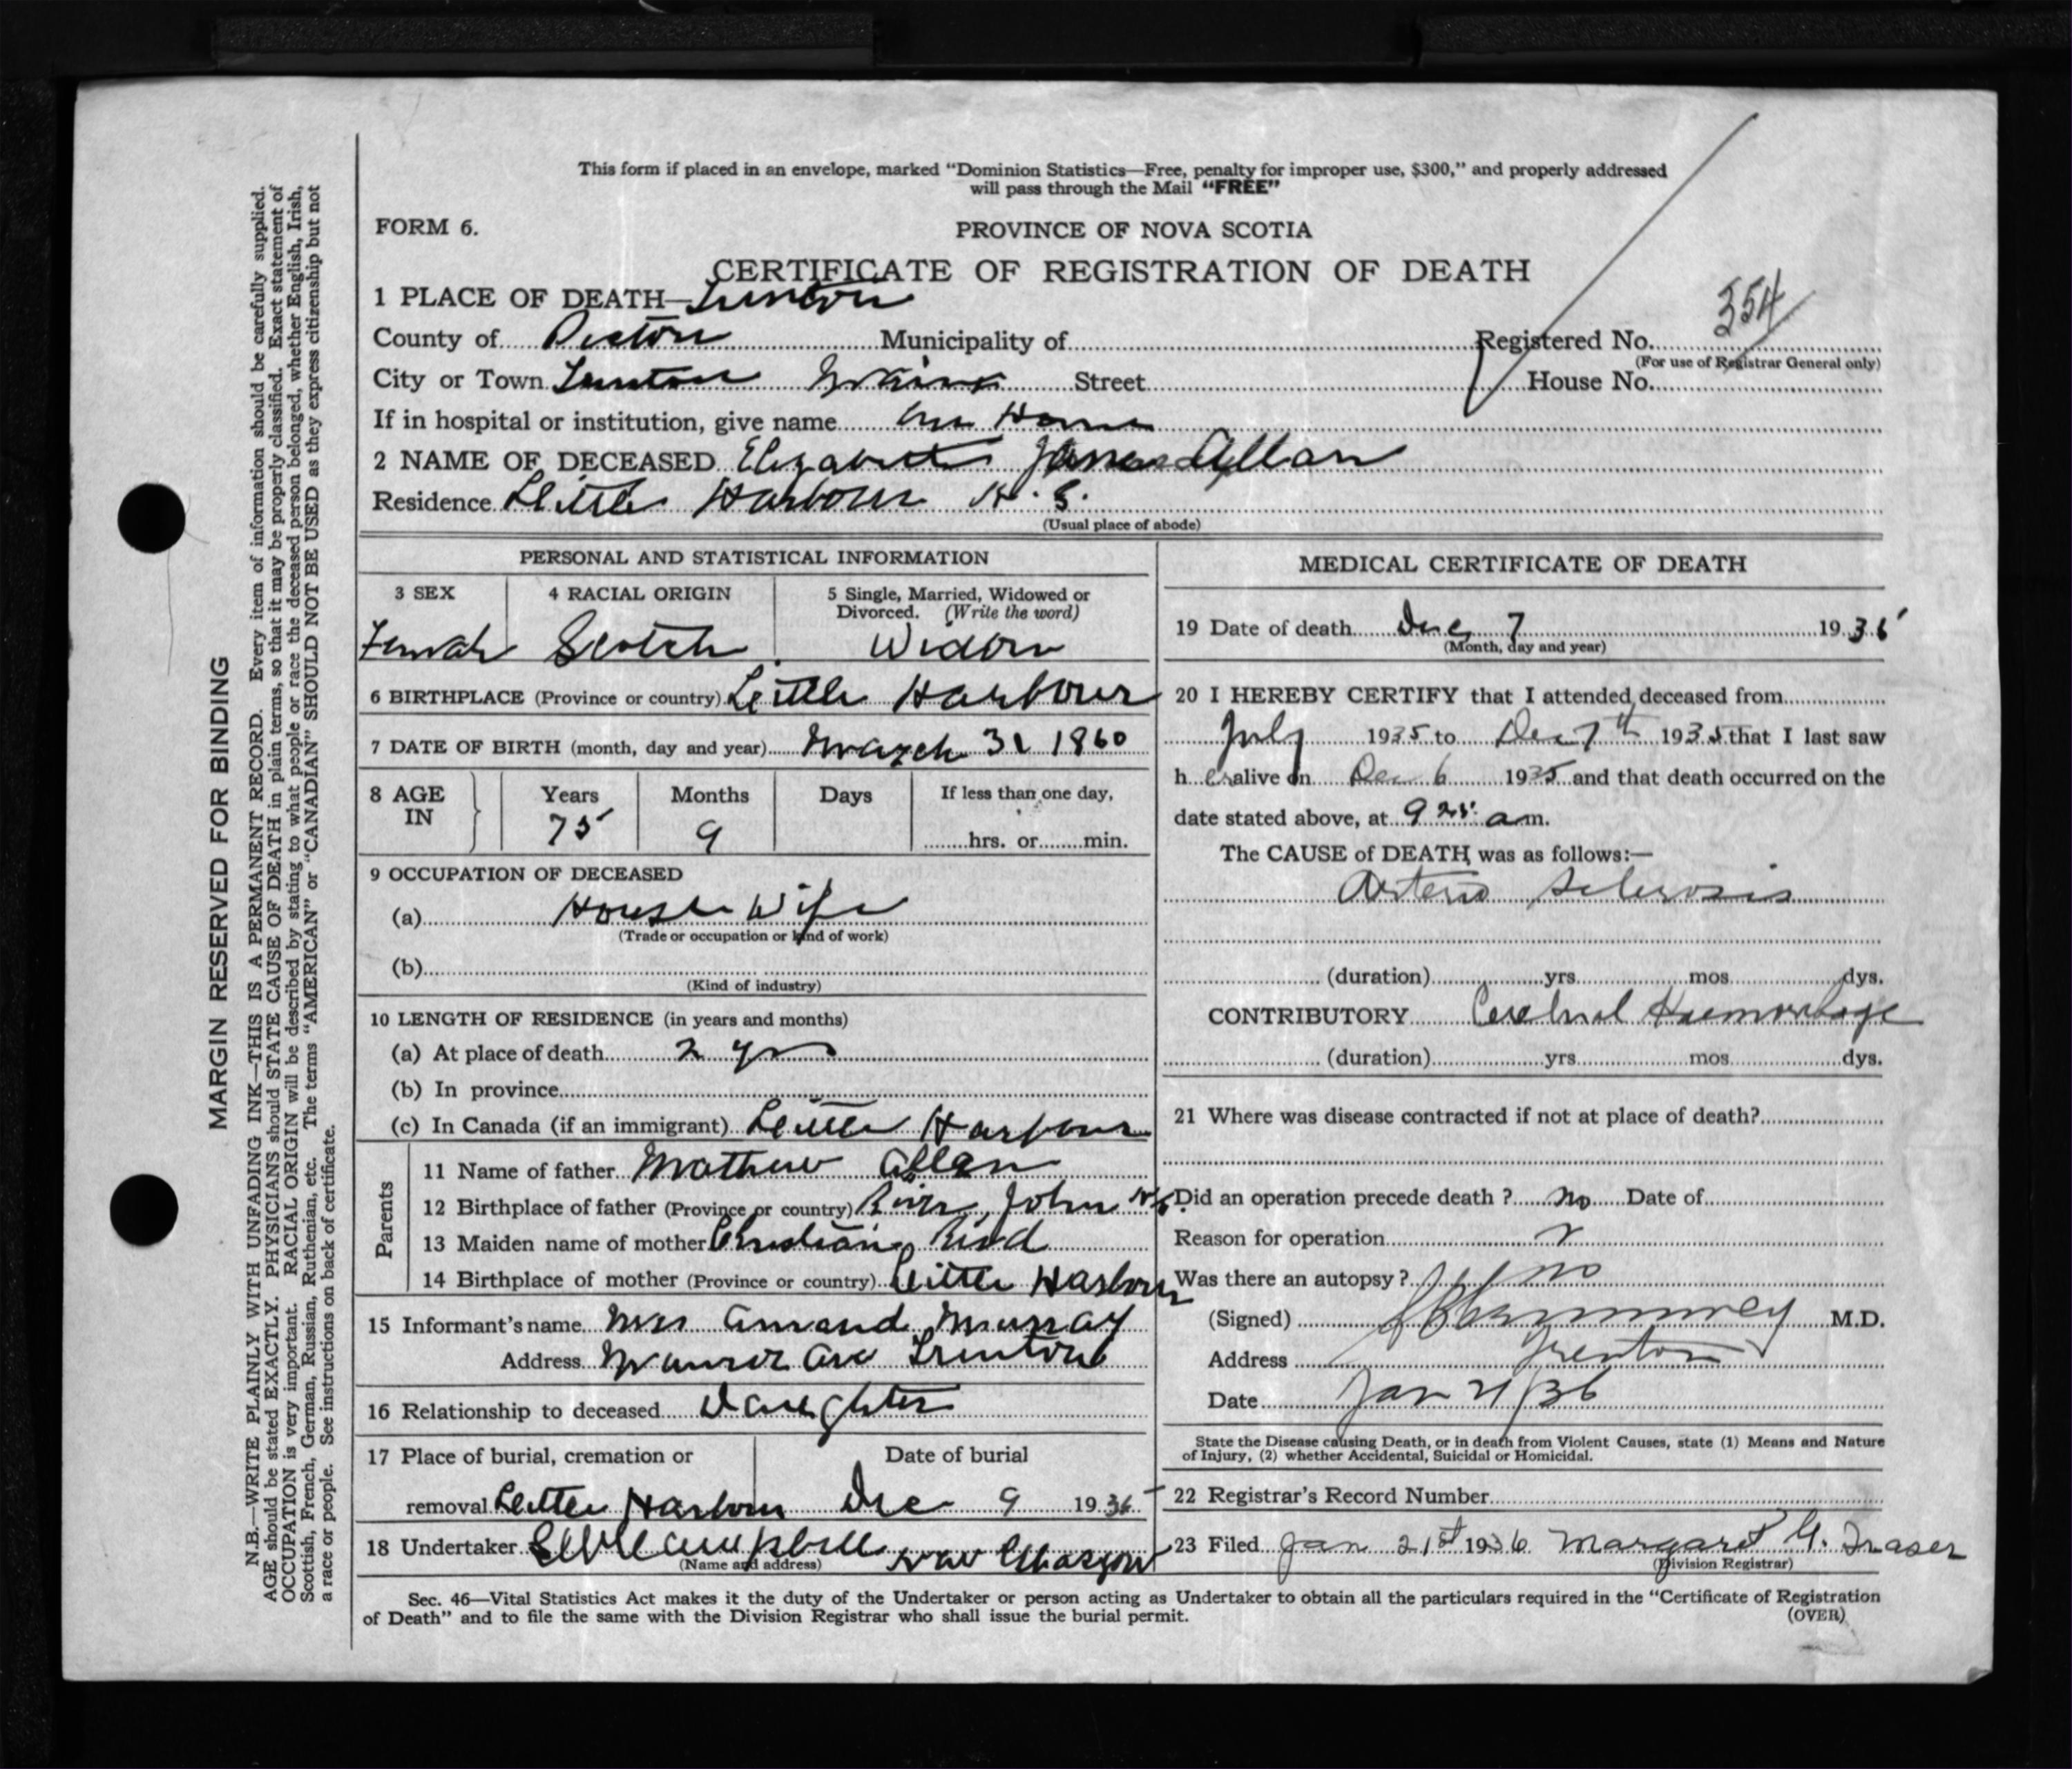 This form if placed in an envelope, marked “Dominion Statistics—Free, penalty for improper use, $300,” and properly addressed
will pass through the Mail “FREE”
FORM 6.
PROVINCE OF NOVA SCOTIA
CERTIFICATE OF REGISTRATION OF DEATH
354
1 PLACE OF DEATH— Trenton
County of Pictou Municipality of Registered No.
(For use of Registrar General only)
City or Town Trenton Street House No.
If in hospital or institution, give name Home
2 NAME OF DECEASED Elizabeth Jane Allan
Residence Little Harbour N. S.
(Usual place of abode)
PERSONAL AND STATISTICAL INFORMATION
3 SEX 4 RACIAL ORIGIN 5 Single, Married, Widowed or
Divorced. (Write the word)
Female Scotch Widow
6 BIRTHPLACE (Province or country) Little Harbour
7 DATE OF BIRTH (month, day and year) March 31 1860
8 AGE IN Years Months Days If less than one day,
75 9 hrs. or min.
9 OCCUPATION OF DECEASED
(a) House Wife
(Trade or occupation or kind of work)
(b)
(Kind of industry)
10 LENGTH OF RESIDENCE (in years and months)
(a) At place of death 2 yrs
(b) In province
(c) In Canada (if an immigrant) Little Harbour
Parents
11 Name of father Mathew Allan
12 Birthplace of father (Province or country) River John N.S.
13 Maiden name of mother Christian Reid
14 Birthplace of mother (Province or country) Little Harbour
15 Informant's name Mrs Amand Murray
Address Ave Trenton
16 Relationship to deceased Daughter
17 Place of burial, cremation or Date of burial
removal Little Harbour Dec 9 1935
18 Undertaker Campbell New Glasgow
(Name and address)
MEDICAL CERTIFICATE OF DEATH
19 Date of death Dec 7 1935
(Month, day and year)
20 I HEREBY CERTIFY that I attended deceased from
July 1935 to Dec 7th 1935 that I last saw
h er alive on Dec 6 1935 and that death occurred on the
date stated above, at 9 25 a m.
The CAUSE of DEATH was as follows:—
Arterio Sclerosis
(duration) yrs mos dys.
CONTRIBUTORY Cerebral Haemorrhage
(duration) yrs mos dys.
21 Where was disease contracted if not at place of death?
Did an operation precede death ? No Date of
Reason for operation
Was there an autopsy ? no
(Signed) M.D.
Address Trenton
Date Jan 21/36
State the Disease causing Death, or in death from Violent Causes, state (1) Means and Nature
of Injury, (2) whether Accidental, Suicidal or Homicidal.
22 Registrar's Record Number
23 Filed Jan 21st 1936 Margaret G. Fraser
(Division Registrar)
Sec. 46—Vital Statistics Act makes it the duty of the Undertaker or person acting as Undertaker to obtain all the particulars required in the “Certificate of Registration
of Death” and to file the same with the Division Registrar who shall issue the burial permit.
(OVER)
MARGIN RESERVED FOR BINDING
N.B.—WRITE PLAINLY WITH UNFADING INK—THIS IS A PERMANENT RECORD. Every item of information should be carefully supplied.
AGE should be stated EXACTLY. PHYSICIANS should STATE CAUSE OF DEATH in plain terms, so that it may be properly classified. Exact statement of
OCCUPATION is very important. RACIAL ORIGIN will be described by stating to what people or race the deceased person belonged, whether English, Irish,
Scottish, French, German, Russian, Ruthenian, etc. The terms “AMERICAN” or “CANADIAN” SHOULD NOT BE USED as they express citizenship but not
a race or people. See instructions on back of certificate.